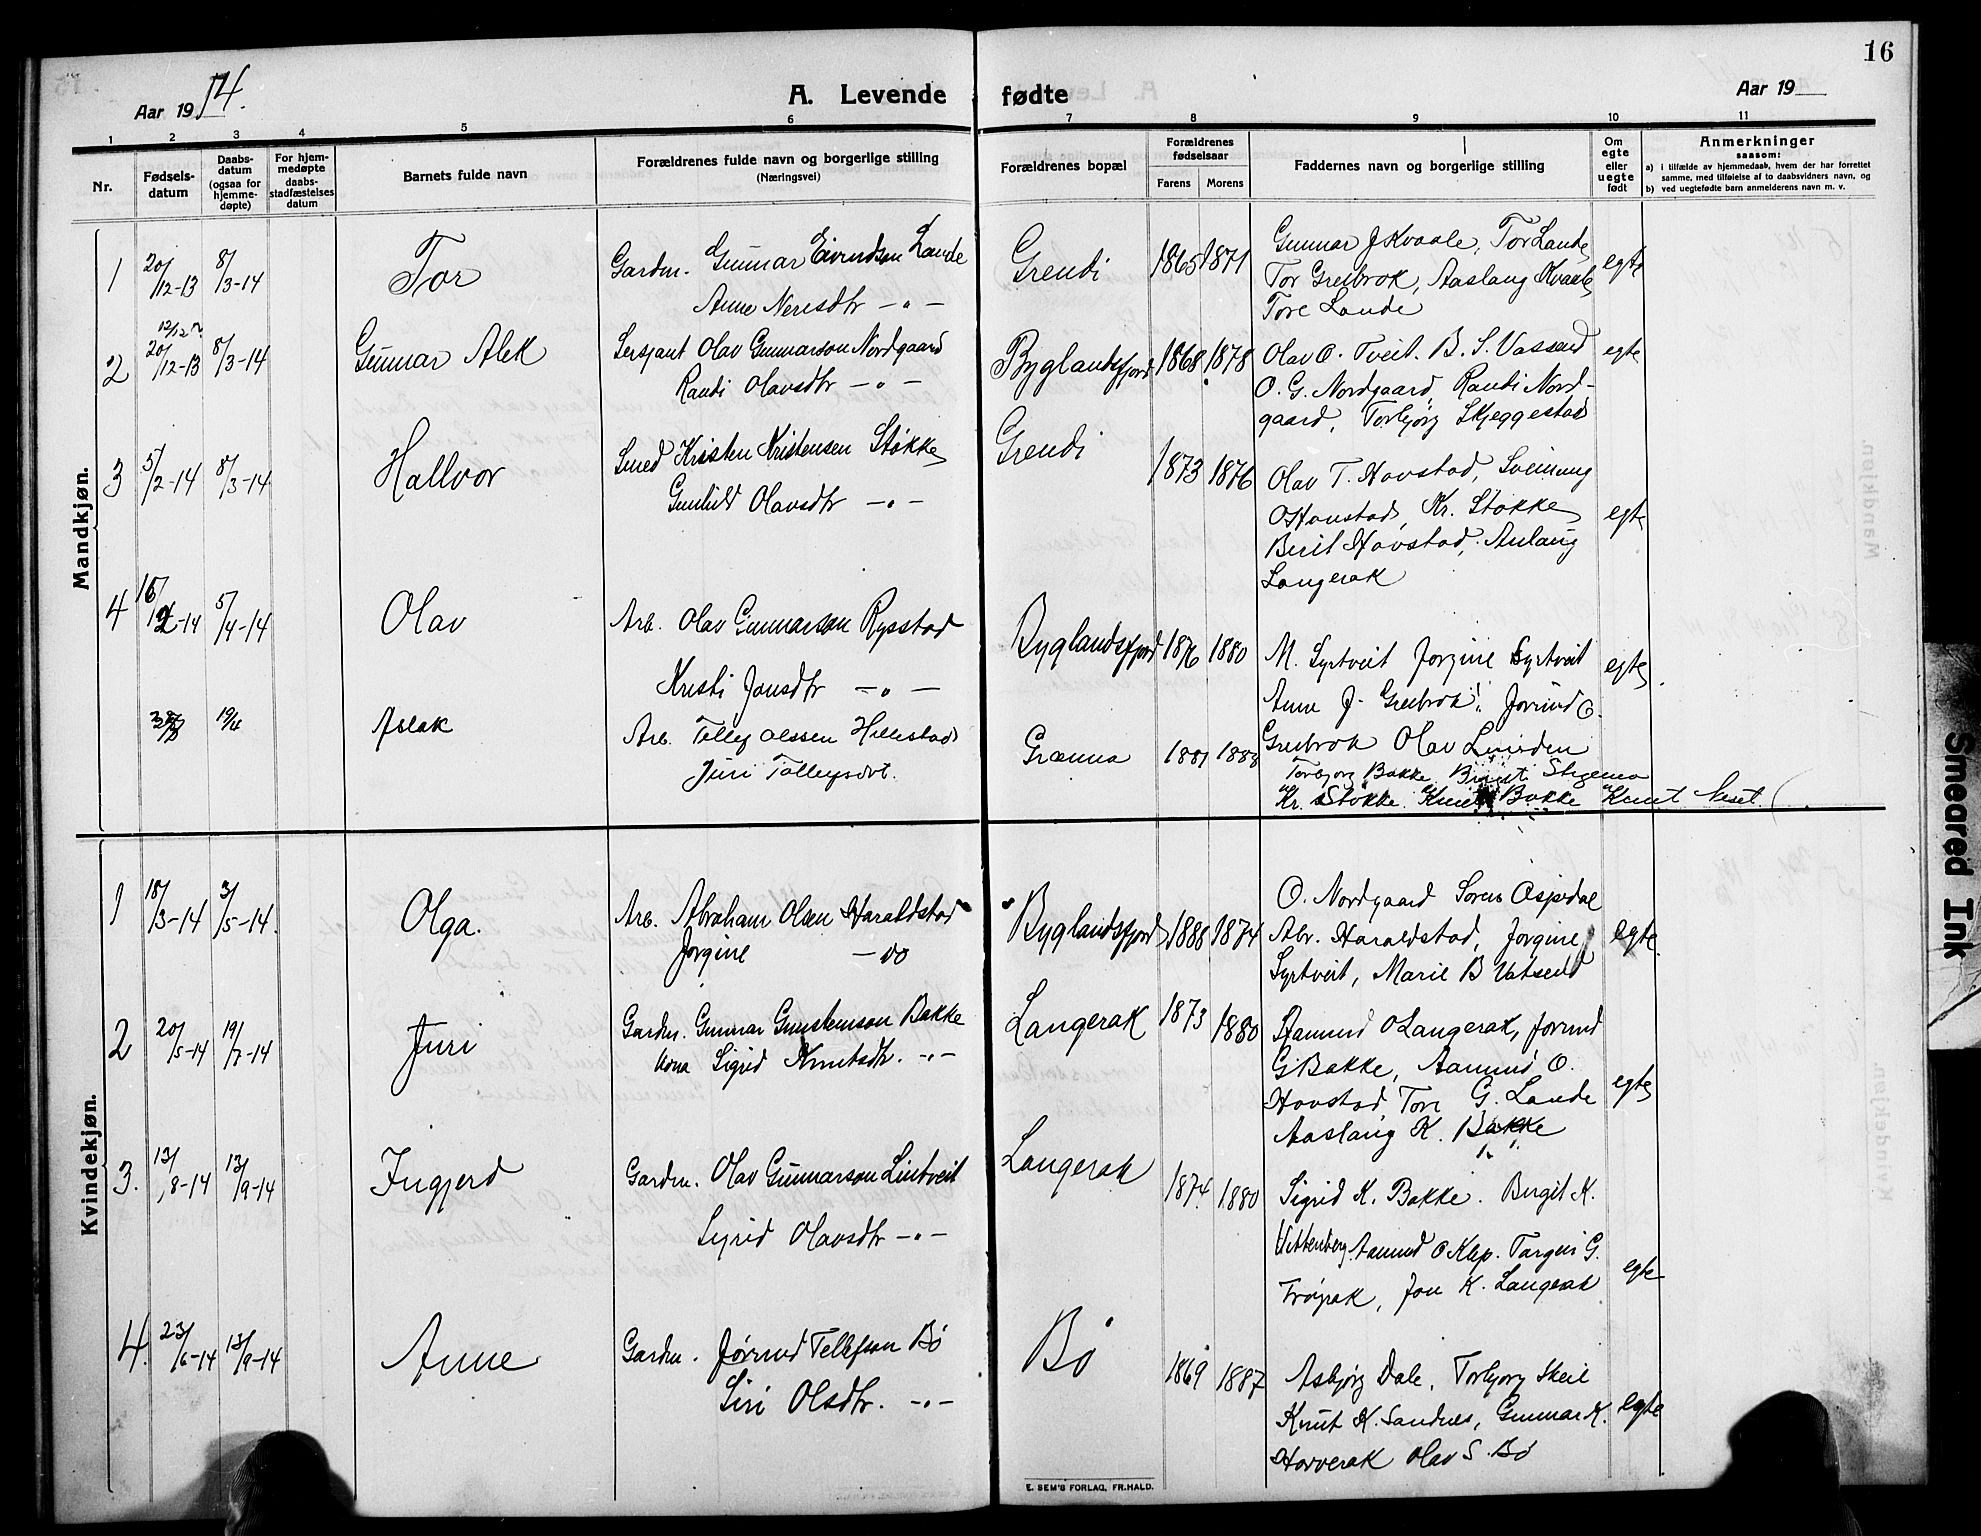 16
Aar 1914.
A. Levende fødte
Aar 19
1 2 3 4 5 6 7 8 9 10 11
Nr.
Fødsels-
datum
Daabs-
datum
(ogsaa for
hjemme-
døpte)
For hjem-
medøpte
daabs-
stadfæstelses
datum
Barnets fulde navn
Forældrenes fulde navn og borgerlige stilling
(Næringsvei)
Forældrenes bopæl
Forældrenes
fødselsaar
Farens Morens
Faddernes navn og borgerlige stilling
Om
egte
eller
uegte
født
Anmerkninger
saasom:
a) i tilfælde av hjemmedaab, hvem der har forrettet
samme, med tilføielse af to daabsvidners navn, og
b) ved uegtefødte barn anmelderens navn m. v.
Mandkjøn.
1 20/12-13 8/3-14 Tor Gardm. Gunnar Eivindson Lande Grendi 1865 1871 Gunnar J Kvaale, Tor Lande egte
Anne Neresdtr —"— Tor Greibrok, Aaslaug Kvaale
Tore Lande
2 20/12-13 8/3-14 Gunnar Alek Sersjant Olav Gunnarson Nordgaard Byglandsfjord 1868 1878 Olav O. Tveit. B. S. Vassend egte
Randi Olavsdtr —"— O. G. Nordgaard, Randi Nord-
gaard, Torbjørg Skjeggestad
3 5/2-14 8/3-14 Hallvor Smed Kristen Kristensen Støkke Grendi 1873 1876 Olav T. Hovstad, Sveinung
Gunhild Olavsdtr —"— O Hovstad, Kr. Støkke egte
Berit Hovstad, Aslaug
Langerak
4 16/2-14 5/4-14 Olav Arb. Olav Gunnarson Rysstad Byglandsfjord 1876 1880 M. Syrtveit Jorgine Syrtveit egte
Kristi Jonsdtr —"— Anne J. Greibrok, Jorund O.
19/4 Aslak Arb. Tolley Olssen Hillestad Grænna 1881 1888 Greibrok Olav
Juri Tolleysdot. Torbjorg Bakke
Kr. Støkke Knut Bakke Knut Neset
Kvindekjøn.
1 18/3-14 3/5-14. Olga. Arb. Abraham Olsen Haraldstad Byglandsfjord 1888 1874 O. Nordgaard Soren Ospedal
Jorgine — do Abr. Haraldstad, Jorgine egte.
Syrtveit, Marie B Vatsend
2 20/5-14 19/7-14 Juri Gardm. Gunnar Gunsteinson Bakke Langerak 1873 1880 Aamund O Langerak, Jorund
Kona Sigrid Knutsdtr. —"— G Bakke, Aamund O.
Hovstad, Tore G. Lande egte
Aaslaug K. Bakke
3. 13/8-14 13/9-14 Ingjerd Gardm. Olav Gunnarson Lintveit Langerak 1874. 1880 Sigrid K. Bakke. Birgit K.
Sigrid Olavsdtr —"— Vittenberg, Aamund O Kap. Targei G.
Frøirak, Jon K. Langerak egte
4. 23/6-14 13/9-14 Anne Gardm. Jørund Tellefson Bø Bø 1869 1887 Asbjørg Dale, Torbjorg Skeie
Siri Olsdtr. —"— Knut K. Sandnes, Gunnar K. egte
Horverak Olav S. Bø
E. SEM'S FORLAG, FR.HALD.
Smeared Ink